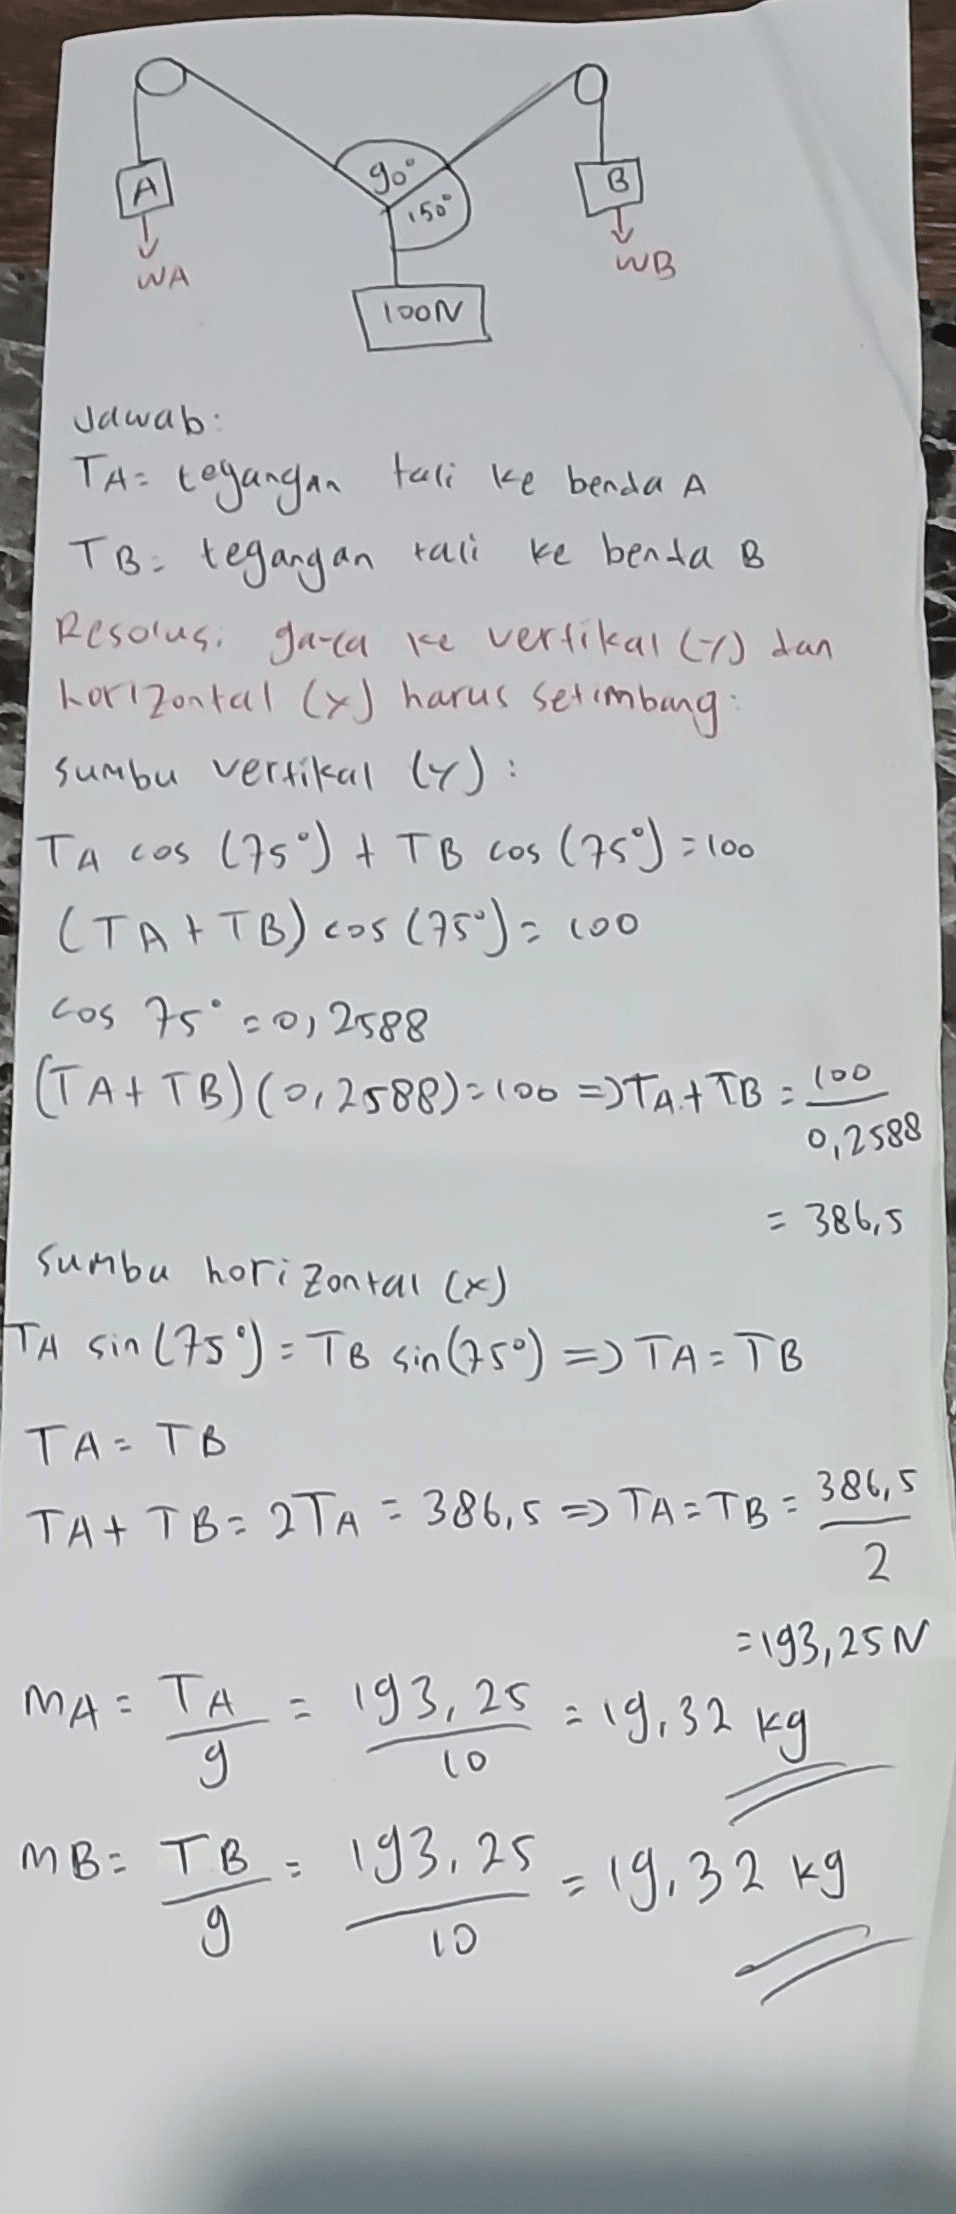 90°
A
B
150°
WA
WB
100N
Jawab:
TA = tegangan tali ke benda A
TB = tegangan tali ke benda B
Resolusi gaya ke vertikal (y) dan
horizontal (x) harus setimbang:
Sumbu vertikal (y):
TA cos (75°) + TB cos (75°) = 100
(TA + TB) cos (75°) = 100
cos 75° = 0,2588
(TA + TB) (0,2588) = 100 => TA + TB = 100/0,2588
= 386,5
Sumbu horizontal (x)
TA sin (75°) = TB sin (75°) => TA = TB
TA = TB
TA + TB = 2TA = 386,5 => TA = TB = 386,5/2
= 193,25 N
MA = TA/g = 193,25/10 = 19,32 kg
MB = TB/g = 193,25/10 = 19,32 kg